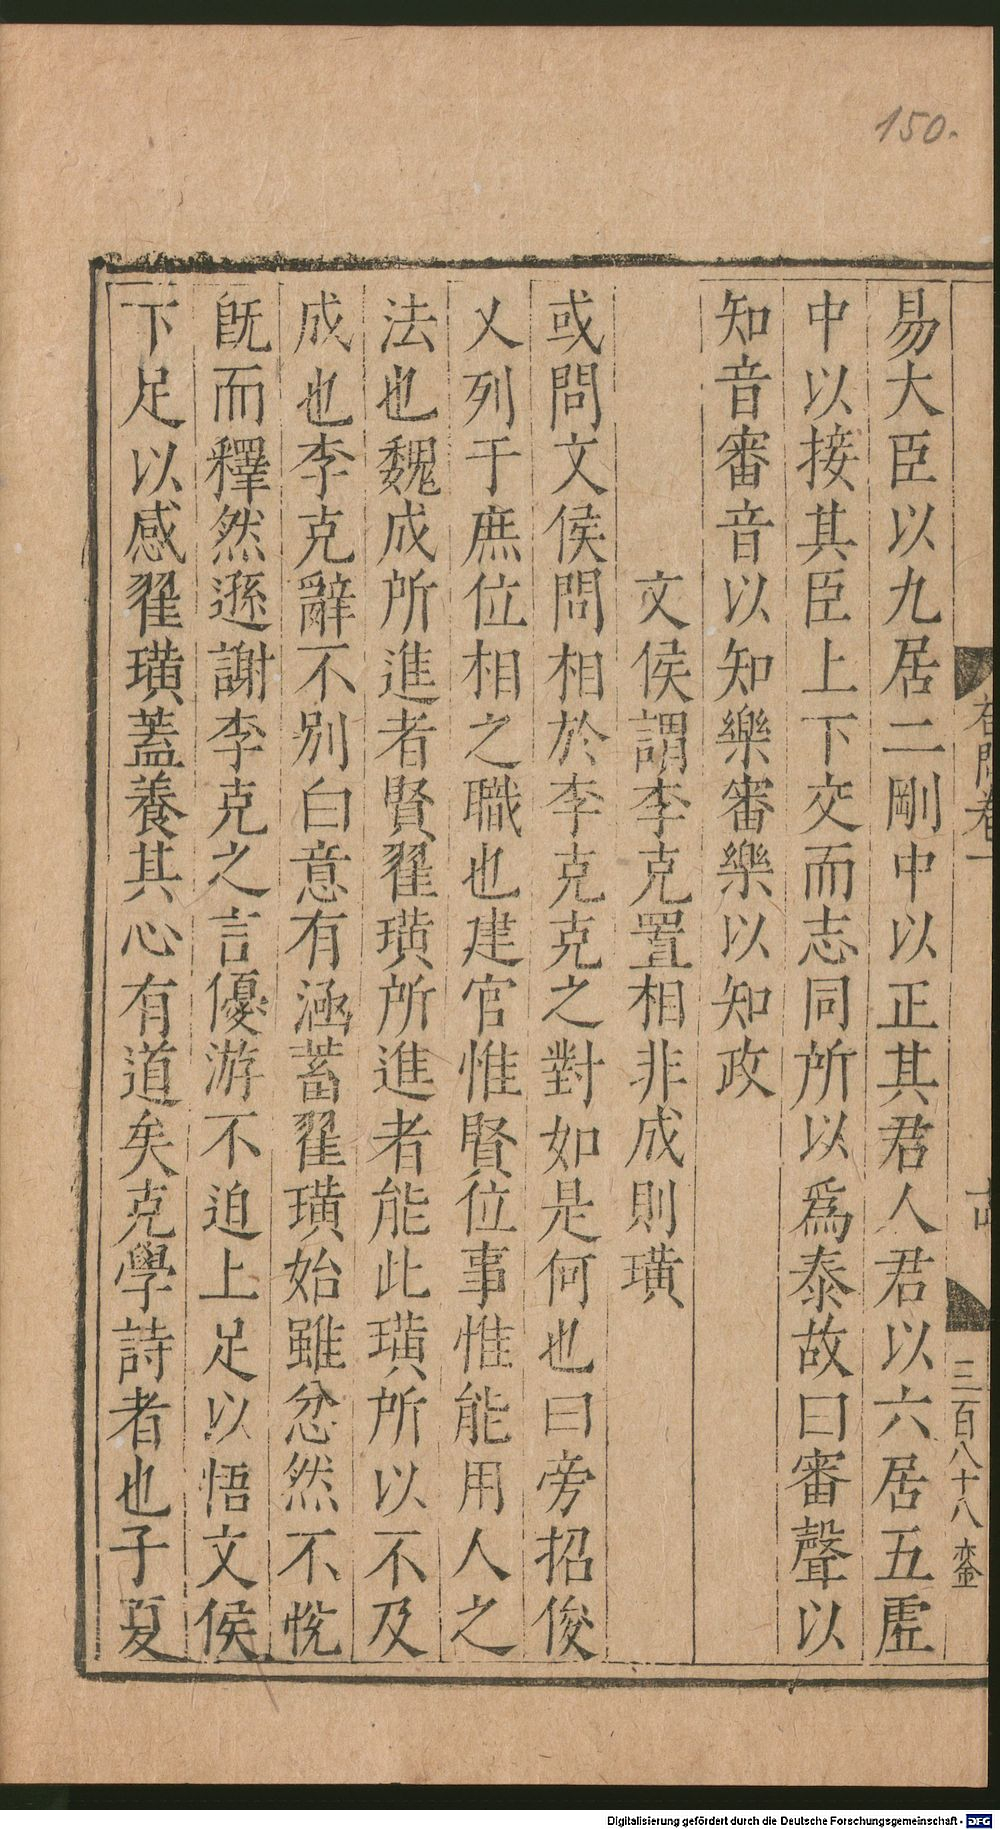 150.
易大臣以九居二剛中以正其君人君以六居五虛
中以接其臣上下交而志同所以爲泰故曰審聲以
知音審音以知樂審樂以知政
文侯謂李克置相非成則璜
或問文侯問相於李克克之對如是何也曰旁招俊
乂列于庶位相之職也建官惟賢位事惟能用人之
法也魏成所進者賢翟璜所進者能此璜所以不及
成也李克辭不別白意有涵蓄翟璜始雖忿然不悅
旣而釋然遜謝李克之言優游不迫上足以悟文侯
下足以感翟璜蓋養其心有道矣克學詩者也子夏
答問卷一
三百八十八
Digitalisierung gefördert durch die Deutsche Forschungsgemeinschaft - DFG